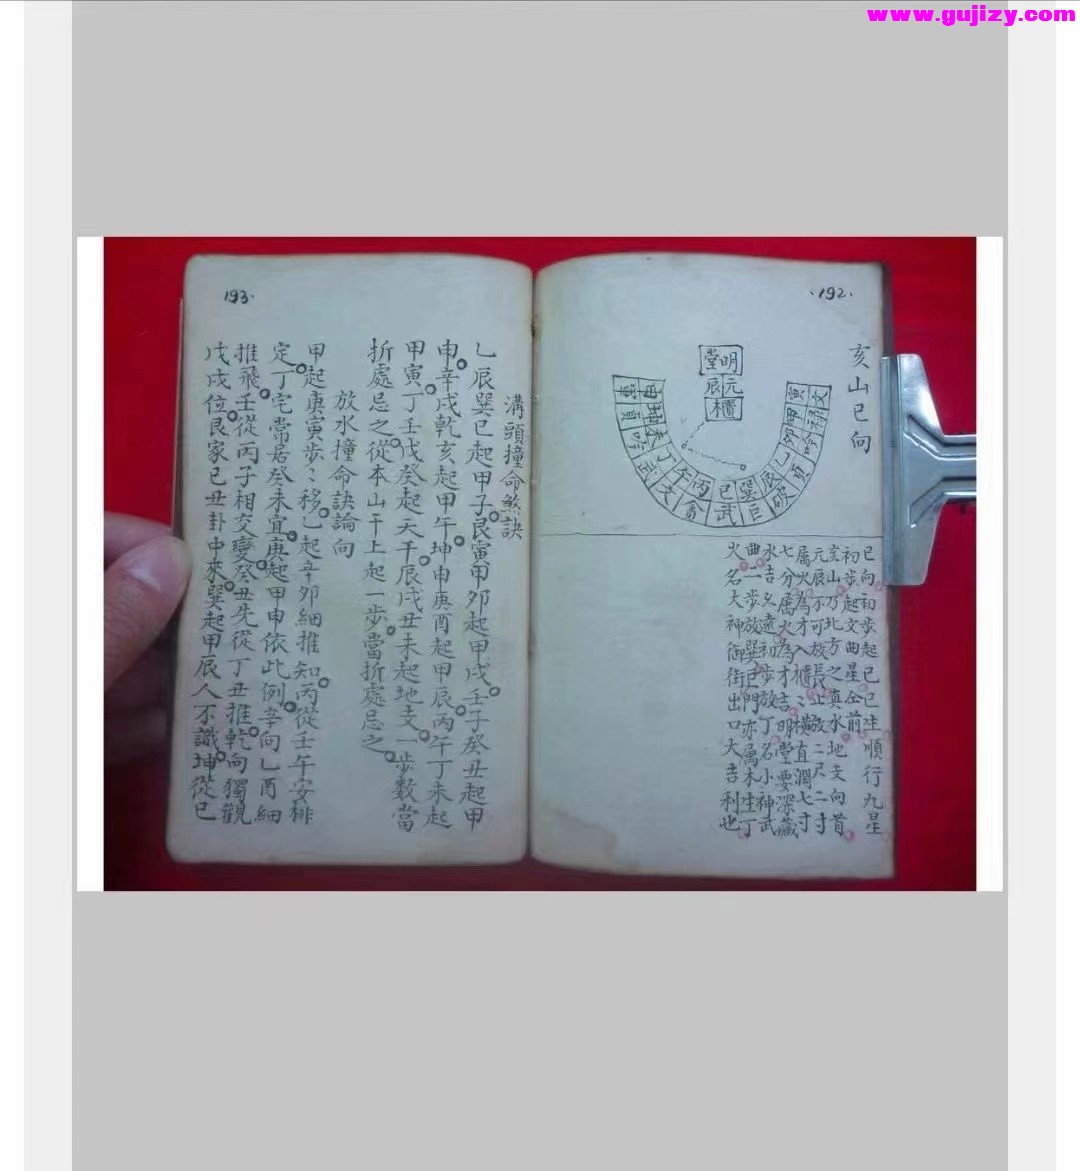 www.gujizy.com
·192·
亥山巳向
明堂
元辰
櫃
巳向初步起巳巳生順行九星
初步起文曲星全前
亥山乃北方之真水地支向首
元辰不可放長止放二尺二寸
属火為才入櫃櫃橫直濶七寸
七分属火為才吉明堂要深藏
水吉又遠初步放丁名小神武
曲一步放巽巨門亦属木生丁
火名大神御街出口大吉利也
文 祿 貞 破 巨 武 貪 文 武 貞
寅 甲 卯 乙 辰 巽 巳 丙 午 丁 未 坤 申
193·
溝頭撞命煞訣
乙辰巽巳起甲子艮寅甲夘起甲戌壬子癸丑起甲
申辛戌乾亥起甲午坤申庚酉起甲辰丙午丁未起
甲寅丁壬戊癸起天干辰戌丑未起地支一步数當
折處忌之從本山干上起一步當折處忌之
放水撞命訣論向
甲起庚寅步々移乙起辛夘細推知丙從壬午安排
定丁宅常居癸未宜庚起甲申依此例辛向乙酉細
推飛壬從丙子相交變癸丑先從丁丑推乾向獨觀
戊戌位艮家巳丑卦中來巽起甲辰人不識坤從巳